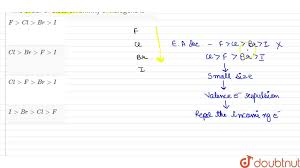 F > Cl > Br > I
Cl > Br > F > I
Cl > F > Br > I
I > Br > Cl > F
F
Cl
Br
I
E.A Acc - F > Cl > Br > I X
Cl > F > Br > I
Small size
Valence e⁻ repulsion
the incoming e⁻
doubtnut